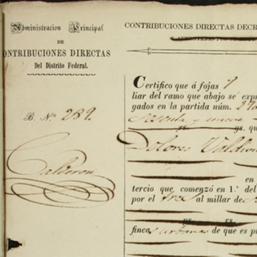 Administracion Principal
DE
CONTRIBUCIONES DIRECTAS
Del Distrito Federal.
B N.º 289.
Calderon
CONTRIBUCIONES DIRECTAS DECR
Certifico que á fojas
liar del ramo que abajo se expr
gados en la partida núm.
y nueve
Dolores
en
tercio que comenzó en 1.º del
por el tres al millar de
finca
de que es p